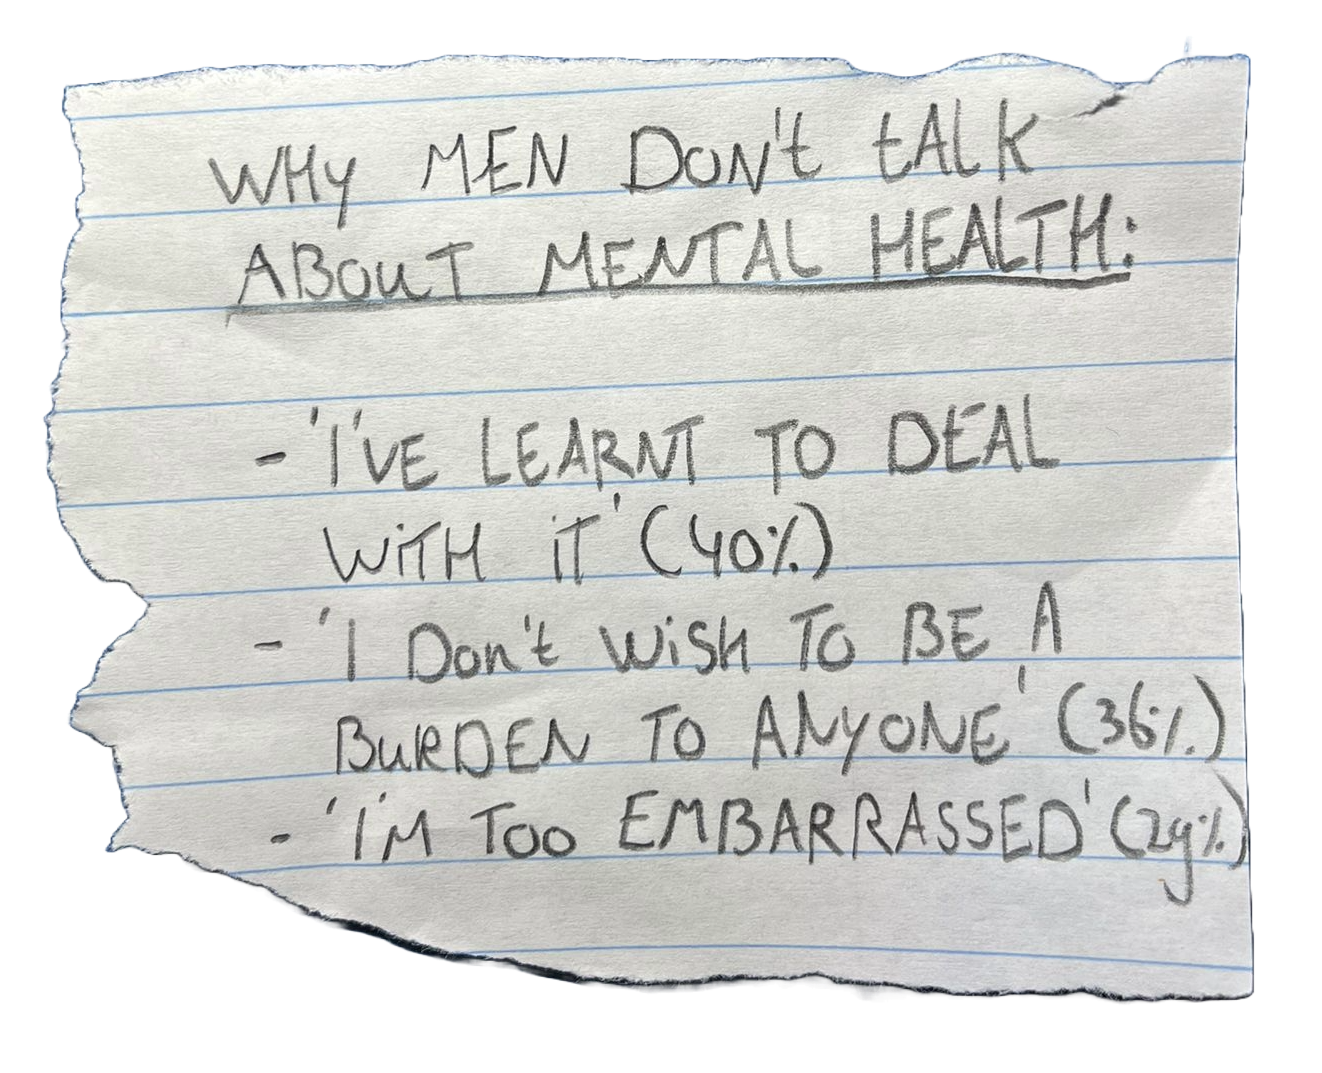 WHY MEN DON't tALK
ABOUT MENTAL HEALTH:
- 'I'VE LEARNT TO DEAL
WiTH iT' (40%)
- 'I Don't WiSH TO BE A
BURDEN TO ANYONE' (36%)
- 'I'M Too EMBARRASSED' (29%)